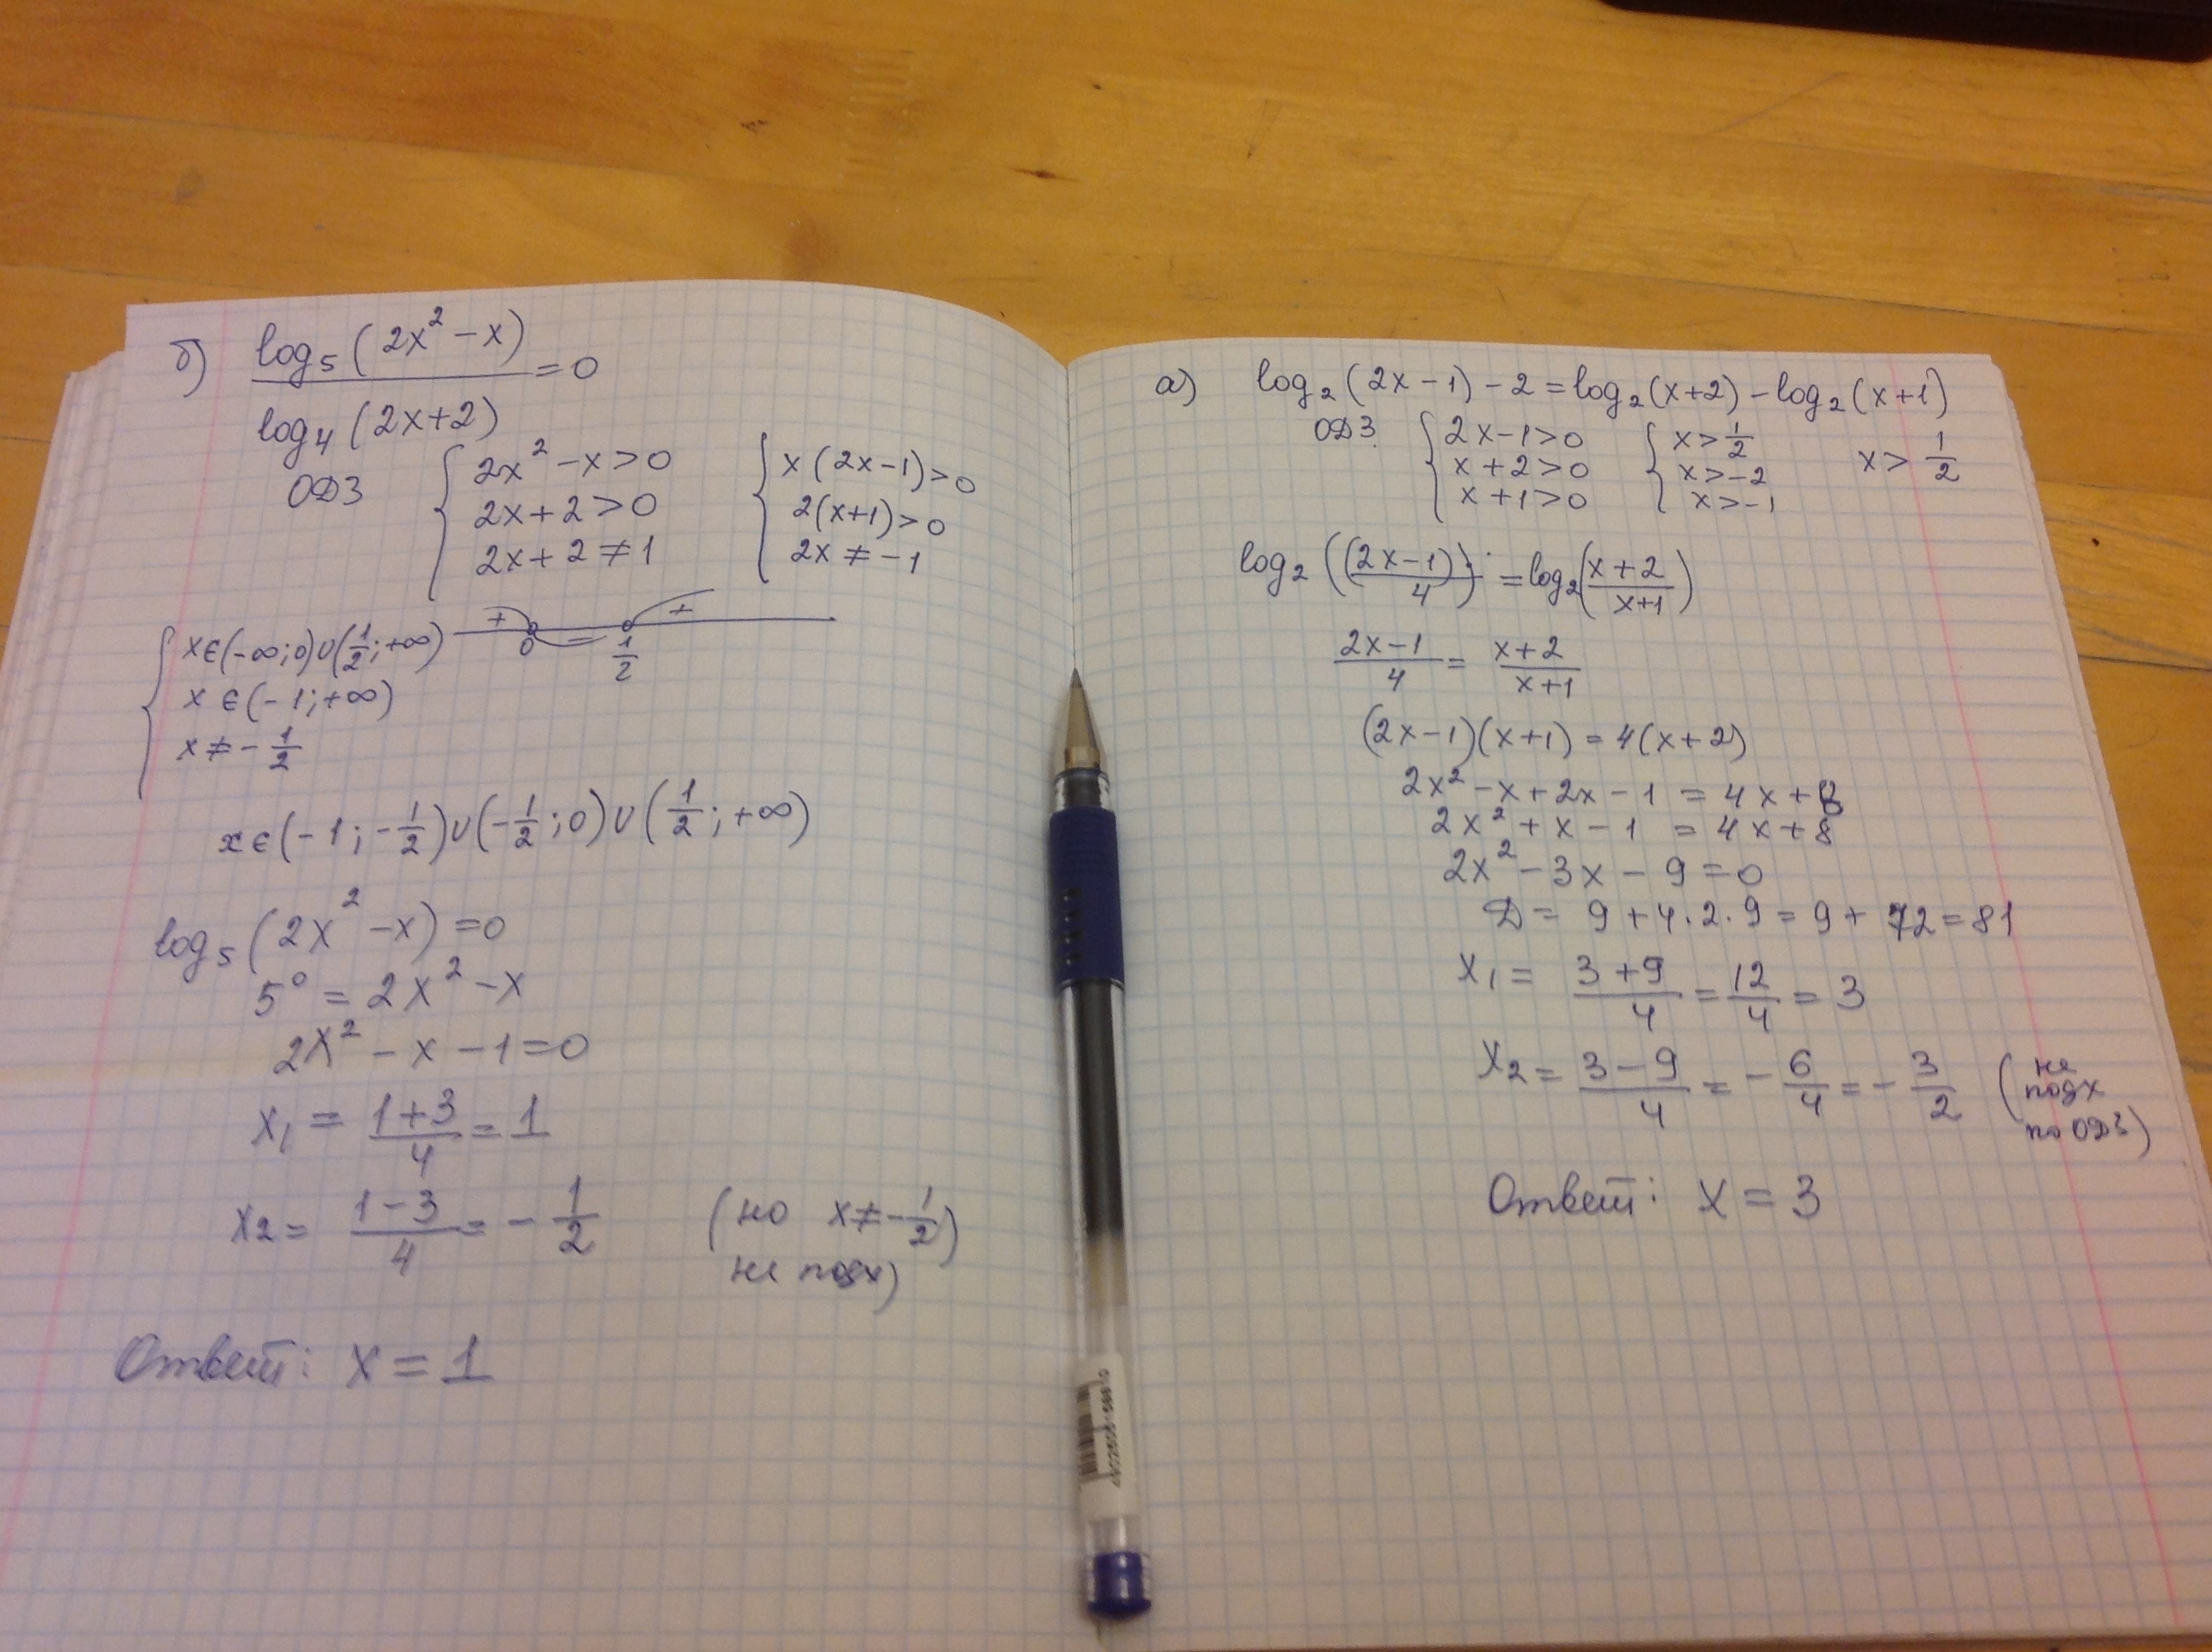 б) log₅(2x² - x) / log₄(2x+2) = 0
ОДЗ { 2x² - x > 0 { x(2x-1) > 0
2x + 2 > 0 2(x+1) > 0
2x + 2 ≠ 1 2x ≠ -1
+ 0 - 1/2 +
{ x ∈ (-∞; 0) ∪ (1/2; +∞)
x ∈ (-1; +∞)
x ≠ - 1/2
x ∈ (-1; -1/2) ∪ (-1/2; 0) ∪ (1/2; +∞)
log₅(2x² - x) = 0
5⁰ = 2x² - x
2x² - x - 1 = 0
x₁ = (1+3)/4 = 1
x₂ = (1-3)/4 = - 1/2 (но x ≠ - 1/2)
не подх)
Ответ: x = 1
а) log₂(2x - 1) - 2 = log₂(x+2) - log₂(x+1)
ОДЗ { 2x - 1 > 0 { x > 1/2 x > 1/2
x + 2 > 0 x > -2
x + 1 > 0 x > -1
log₂((2x-1)/4) = log₂((x+2)/(x+1))
(2x-1)/4 = (x+2)/(x+1)
(2x-1)(x+1) = 4(x+2)
2x² - x + 2x - 1 = 4x + 8
2x² + x - 1 = 4x + 8
2x² - 3x - 9 = 0
D = 9 + 4·2·9 = 9 + 72 = 81
x₁ = (3+9)/4 = 12/4 = 3
x₂ = (3-9)/4 = - 6/4 = - 3/2 (не
подх
по ОДЗ)
Ответ: x = 3